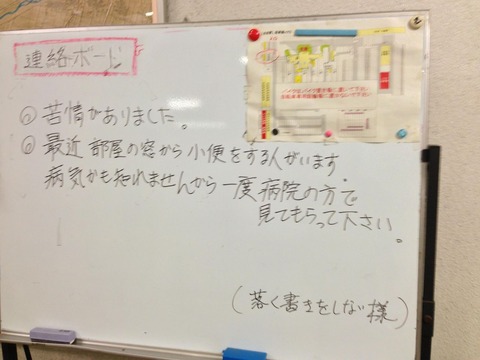 連絡ボード
◎ 苦情がありました。
◎ 最近 部屋の窓から小便をする人がいます
病気かも知れませんから一度 病院の方で
見てもらって下さい。
(落く書きをしない様)